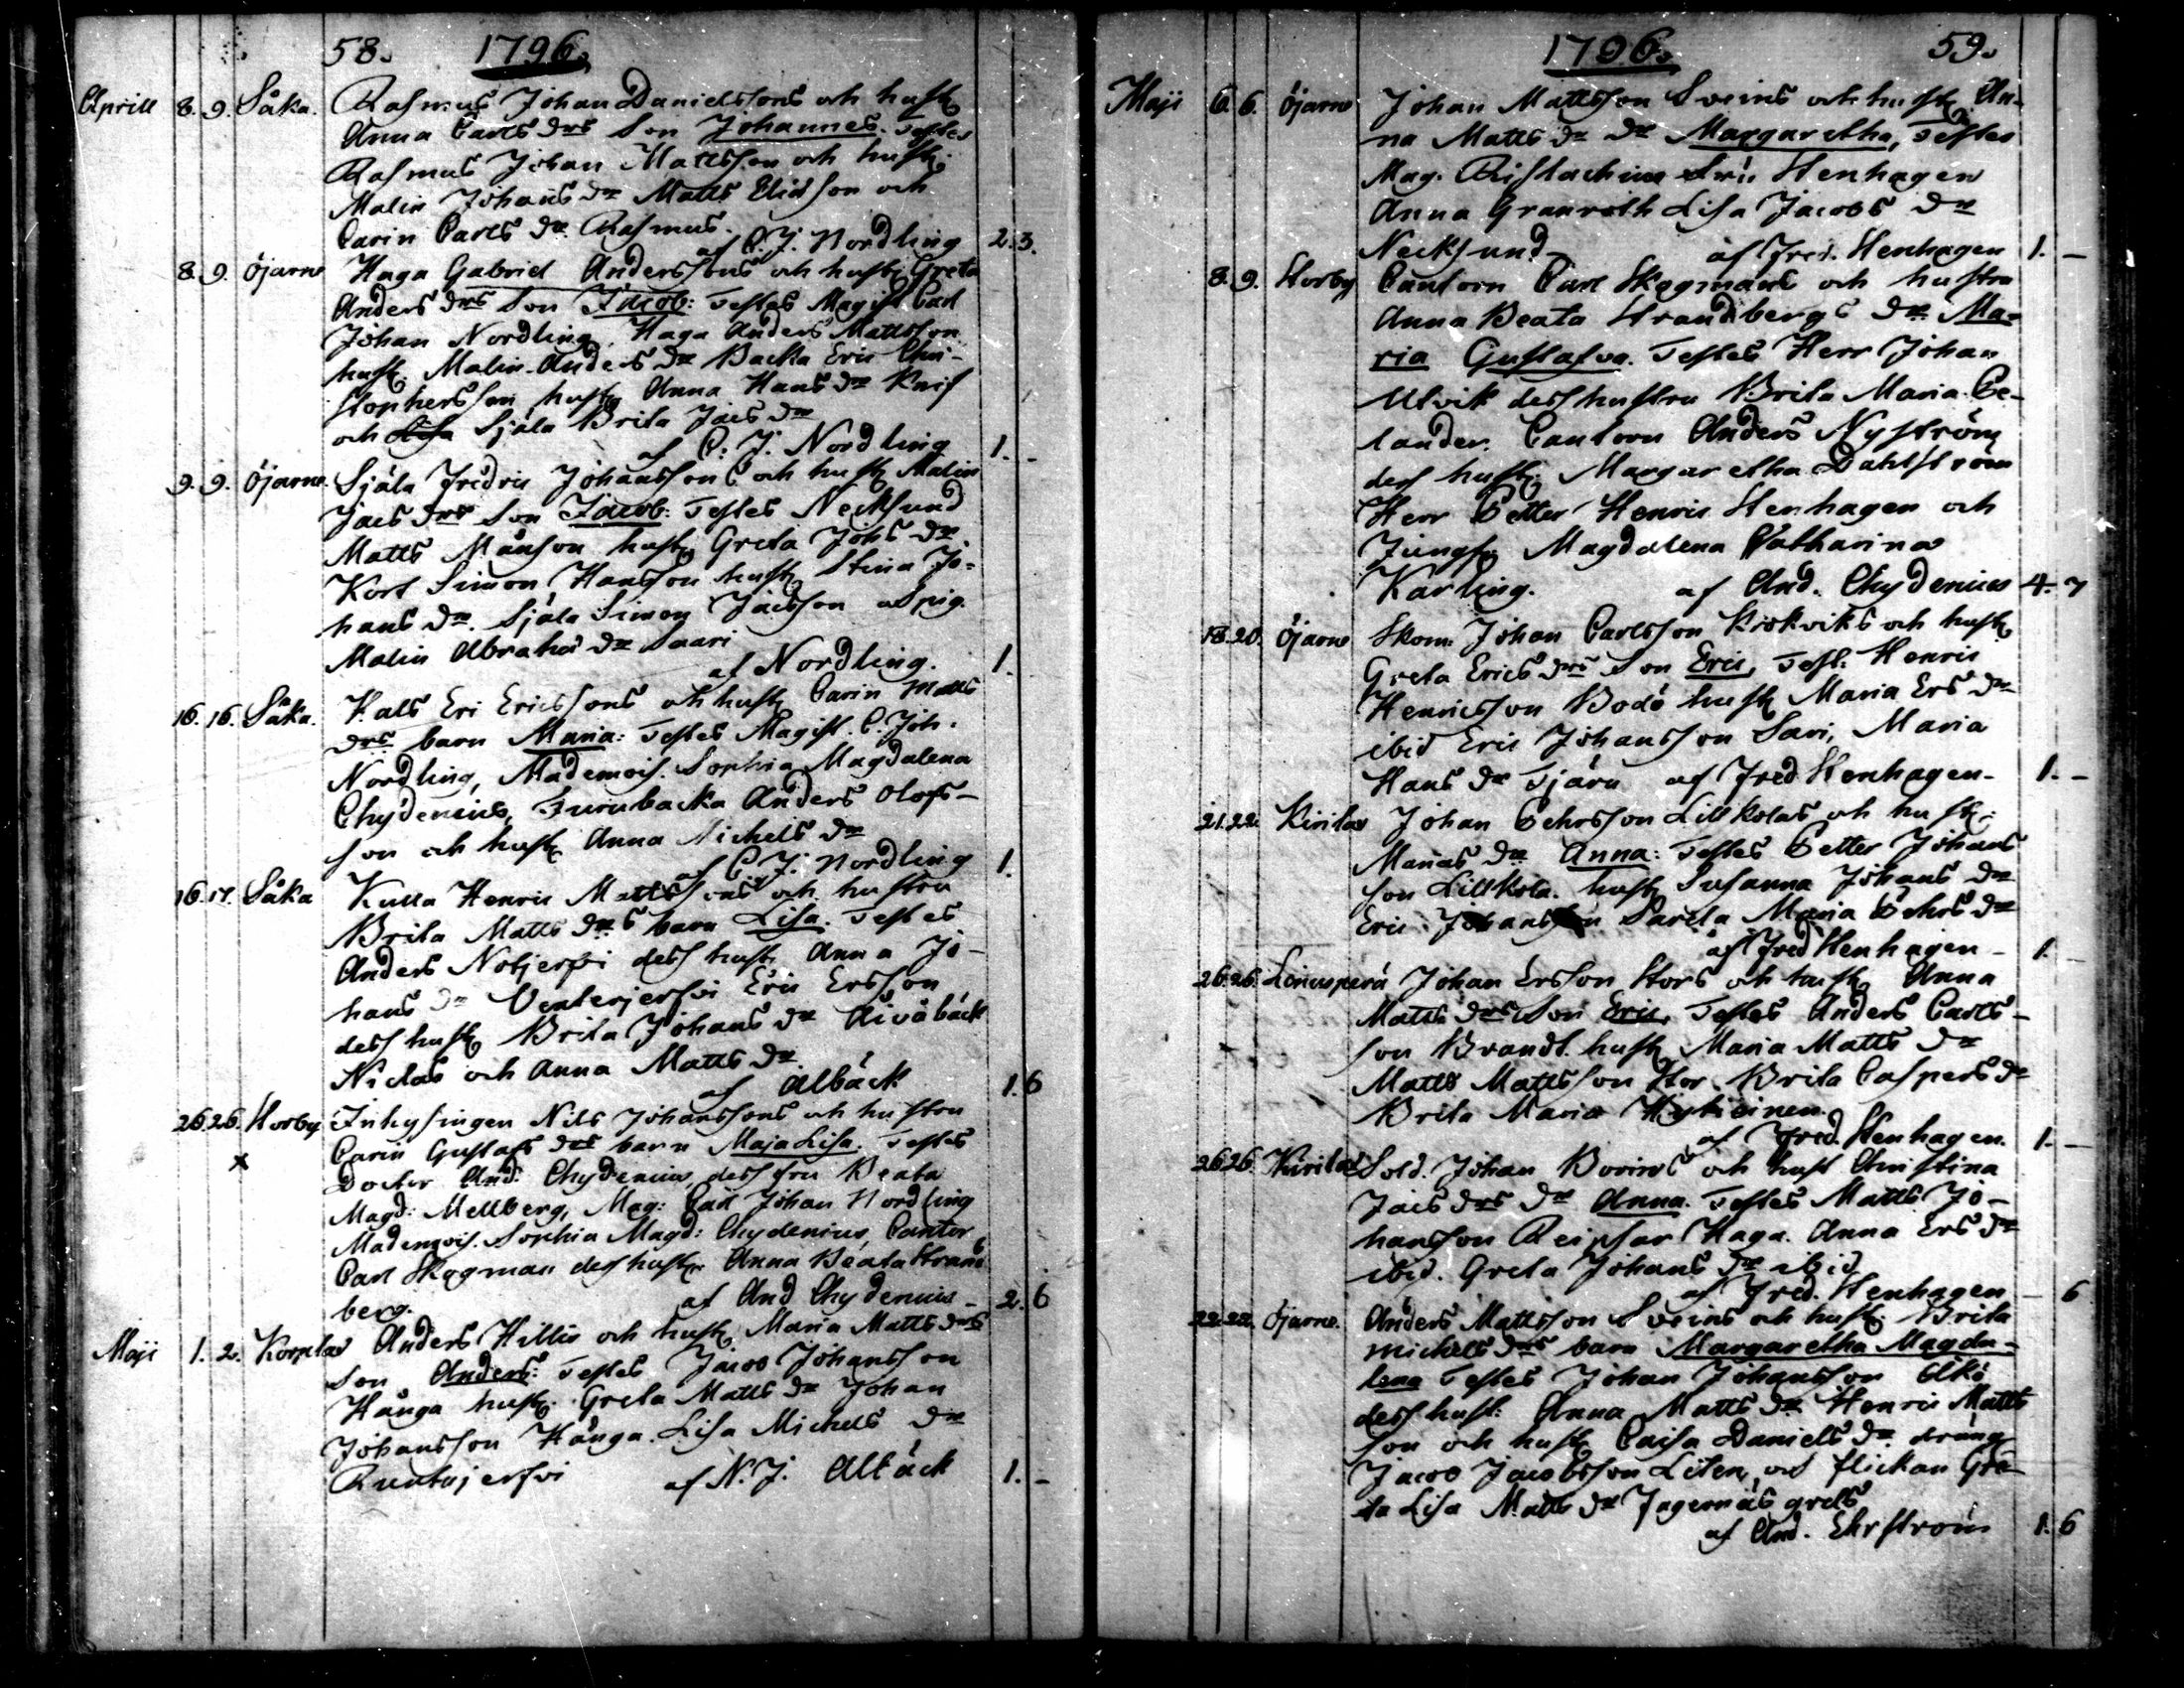 58. 1796.
Aprill 8. 9. Såka. Rasmus Johan Danielssons och hust.
Anna Carls drs Son Johannes. Testes
Rasmus Johan Mattsson och hust.
Malin Johans dr Matts Elidson och
Carin Carls dr. Rasmus.
af C. J. Nordling 2. 3.
8. 9. Öjarne Haga Gabriel Anderssons och hust. Greta
Anders drs Son Jacob: Testes Magist Carl
Johan Nordling, Haga Anders Mattsson
hust. Malin Anders dr Backa Eric Chri-
stophersson hust. Anna Hans dr Knif
och Själa Brita Jacs dr
af C. J. Nordling 1. -
9. 9. Öjarne. Själa Fredric Johanssons och hust. Malin
Jacs drs Son Jacob: Testes Necksund
Matts Månson hust. Greta Johs dr
Kort Simon Hansson hust. Stina Jo-
hans dr. Själa Simon Jacsson och pig.
Malin Abrahs dr Saari
af Nordling. 1.
16. 16. Såka. Kals Eri Ericssons och hust. Carin Matts
drs barn Maria: Testes Magist. C. Joh.
Nordling, Mademois. Sophia Magdalena
Chydenius, Furubacka Anders Olofs-
son och hust. Anna Michels dr
af C. J. Nordling 1.
16. 17. Såka Kulla Henric Mattssons och hustru
Brita Matts drs barn Lisa. Testes
Anders Notjerfvi dess hust. Anna Jo-
hans dr Venterjerfvi Eric Ersson
dess hust. Brita Johans dr
Niclas och Anna Matts dr
af Albäck 1. 6
26. 26. Storby Inhysingen Nils Johanssons och hustru
x
Carin Gustafs drs barn Maja Lisa. Testes
Doctor And. Chydenius, dess fru Beata
Magd: Mellberg, Mag: Carl Johan Nordling
Mademois. Sophia Magd: Chydenius, Cantor
Carl Skogman dess hust. Anna Beata Strand
berg. af And Chydenius - 2. 6
Maji 1. 2. Korplax Anders Hillis och hust. Maria Matts drs
Son Anders: Testes Jacob Johansson
Hånga hust. Greta Matts dr Johan
Johansson Hånga. Lisa Michels dr
af N. J. Albäck 1. -
1796. 59.
Maji 6. 6. Öjarne Johan Mattsson Sveins och hust. An-
na Matts dr dr Margaretha, Testes
Mag. Ristachius Fru Stenhagen
Anna Granroth Lisa Jacobs dr
Necksund af Fred. Stenhagen 1. -
8. 9. Storby Cantorn Carl Skogmans och hustru
Anna Beata Strandbergs dr Ma-
ria Gustafva. Testes Herr Johan
Ulvik dess hustru Brita Maria Ce-
lander. Cantorn Anders Nyström
dess hust. Margaretha Dahlström
Herr Petter Henric Stenhagen och
Jungf. Magdalena Catharina
Karling. af And. Chydenius 4. 7
18. 20. Öjarne Skom. Johan Carlsson Krokviks och hust.
Greta Erics drs Son Eric, Test: Henric
Henricsson Bodö hust. Maria Ers dr
ibid Eric Johansson Sari, Maria
Hans dr Tjäru af Fred Stenhagen - 1. -
21. 22. Kirilax Johan Pehrsson Lillkolas och hust.
Marias dr Anna: Testes Petter Johans
son Lillkola. hust. Susanna Johans dr
Eric Johansson Parela Maria Pehrs dr
af Fred Stenhagen - 1.
26. 26. Johan Ersson Stors och hust. Anna
Matts drs Son Eric, Testes Anders Carls-
son Brandt. hust. Maria Matts dr
Matts Mattsson Stor. Brita Caspers dr
Brita Maria
af Fred. Stenhagen. 1. -
26. 26. Kirilax Sold. Johan och hust Christina
Jacs drs dr Anna. Testes Matts Jo-
hansson Reipsar Haga. Anna Ers dr
ibid. Greta Johans dr ibid
af Fred. Stenhagen - 6
22. 22. Öjarne. Anders Mattsson Sveins och hust. Brita
Michels drs barn Margaretha Magda-
lena Testes Johan Johansson Elkö
dess hust: Anna Matts dr Henric Matts
son och hust. Caisa Daniels dr dräng
Jacob Jacobsson Liten, och flickan Gre-
ta Lisa Matts dr
af And. Ehrström 1. 6